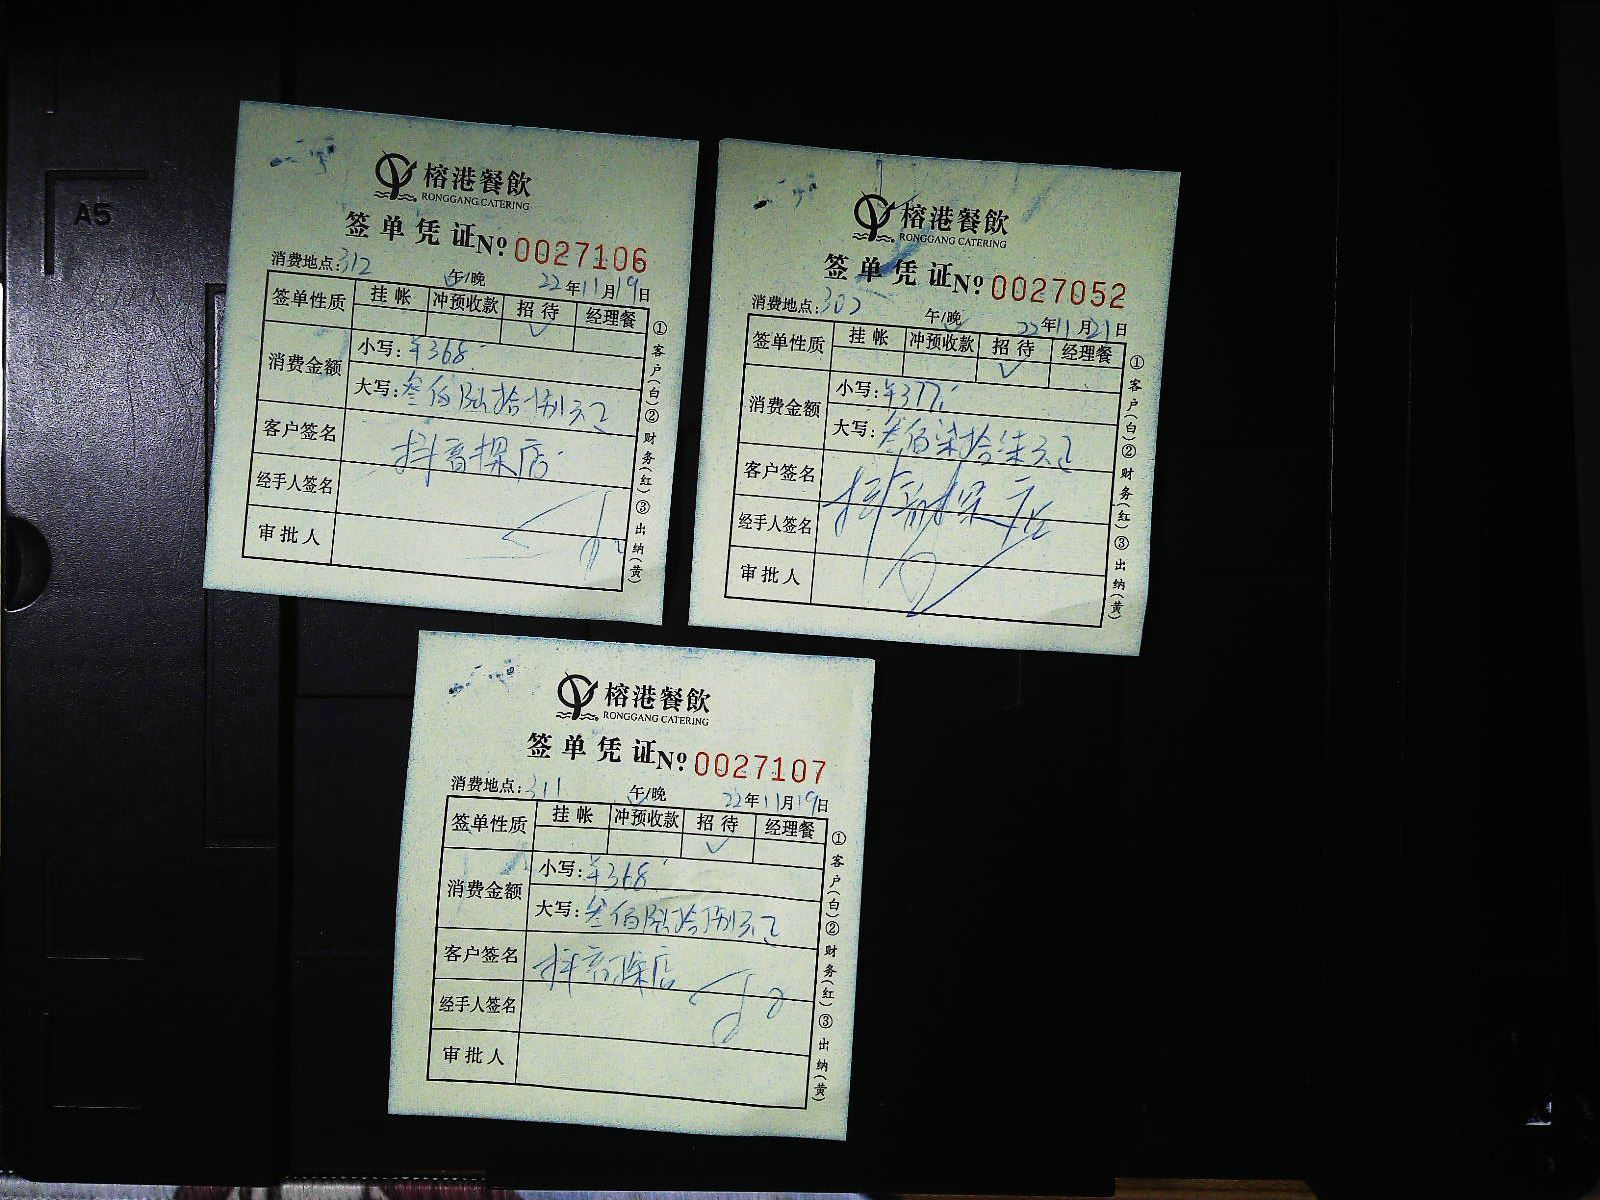 A5
榕港餐飲
RONGGANG CATERING
签单凭证 Nº 0027106
消费地点:312 午/晚 22年11月19日
签单性质 挂帐 冲预收款 招待 经理餐
✓
消费金额 小写:¥368.
大写:叁佰陆拾捌元正
客户签名 抖音探店
经手人签名
审批人
①客户(白)②财务(红)③出纳(黄)
榕港餐飲
RONGGANG CATERING
签单凭证 Nº 0027052
消费地点:302 午/晚 22年11月21日
签单性质 挂帐 冲预收款 招待 经理餐
✓
消费金额 小写:¥377.
大写:叁佰柒拾柒元正
客户签名 抖音探店
经手人签名
审批人
①客户(白)②财务(红)③出纳(黄)
榕港餐飲
RONGGANG CATERING
签单凭证 Nº 0027107
消费地点:311 午/晚 22年11月19日
签单性质 挂帐 冲预收款 招待 经理餐
✓
消费金额 小写:¥368.
大写:叁佰陆拾捌元正
客户签名 抖音探店
经手人签名
审批人
①客户(白)②财务(红)③出纳(黄)